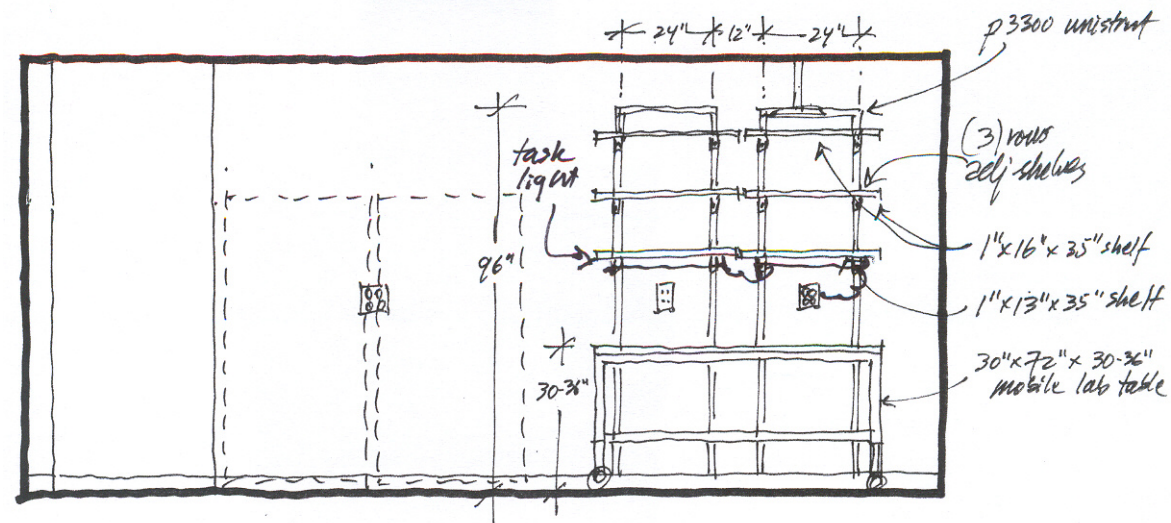 24" 12" 24"
p3300 unistrut
(3) rows
adj shelves
task
light
96"
1"x16"x35" shelf
1"x13"x35" shelf
30-36"
30"x72"x30-36"
mobile lab table